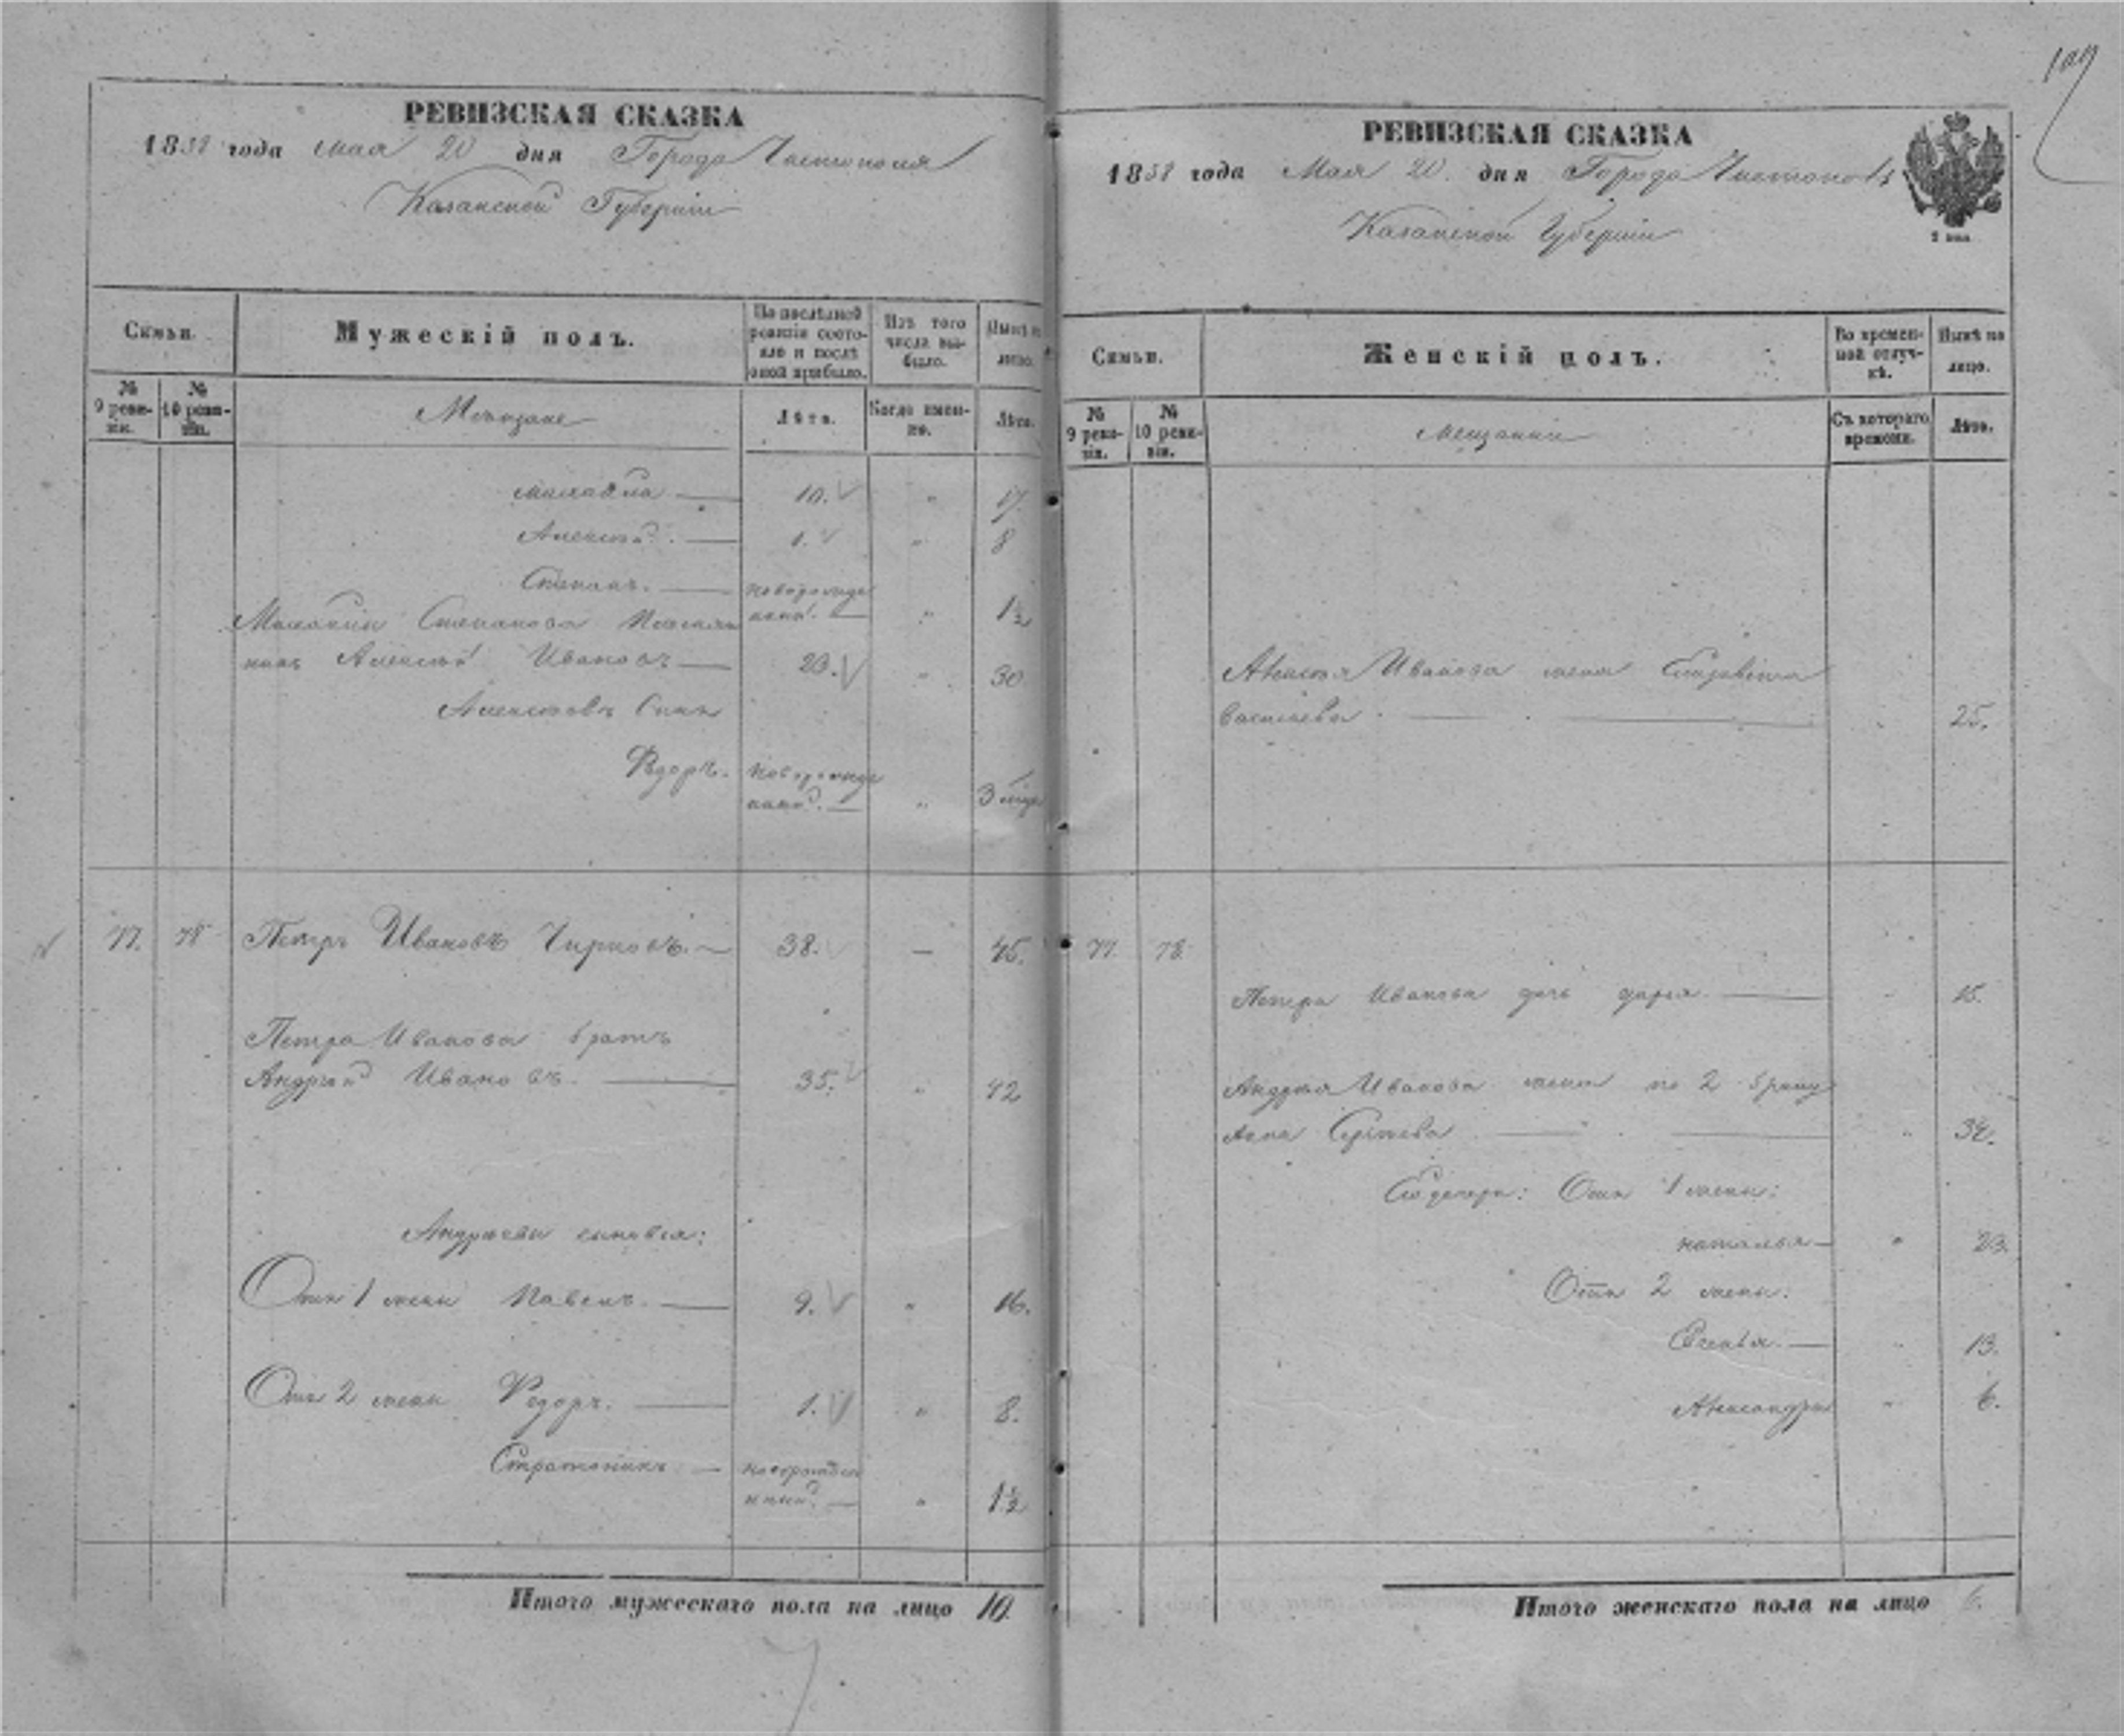 109
РЕВИЗСКАЯ СКАЗКА
1858 года мая 20 дня Города Чистополя
Казанской Губернии
Семьи.
Мужескій полъ.
По послѣдней ревизіи состояло и послѣ оной прибыло.
Изъ того числа выбыло.
Нынѣ на лицо.
№ 9 ревизіи.
№ 10 ревизіи.
Мещане
Лѣта.
Когда именно.
Лѣта.
10. " 17.
Алексѣй. 1. " 8
Степанъ. новорожденный. " 1½
Степанова Племян
никъ Алексѣй Ивановъ 23. " 30
Алексѣевъ Сынъ
Ѳедоръ. новорожденный. " 3
77. 78 Петръ Ивановъ Чирковъ. 38. — 45.
Петра Иванова братъ
Андрей Ивановъ. 35. " 42
Андреевы сыновья:
Отъ 1 жены Павелъ. 9. " 16.
Отъ 2 жены Федоръ. 1. " 8.
Стратоникъ. новорожденный. " 1½
Итого мужескаго пола на лицо 10
РЕВИЗСКАЯ СКАЗКА
1858 года Мая 20. дня Города Чистополя
Казанской Губерніи
Семьи.
Женскій полъ.
Во временной отлучкѣ.
Нынѣ на лицо.
№ 9 ревизіи.
№ 10 ревизіи.
Мещанки
Съ котораго времени.
Лѣта.
Алексѣя Иванова жена Елизавета
Васильева. " 25.
77. 78.
Петра Иванова дочь дарья. " 15.
Андрея Иванова жена по 2 браку
Анна Сергѣева " 34.
Его дочери: Отъ 1 жены:
наталья " 23.
Отъ 2 жены:
" 13.
Александра " 6.
Итого женскаго пола на лицо 6.